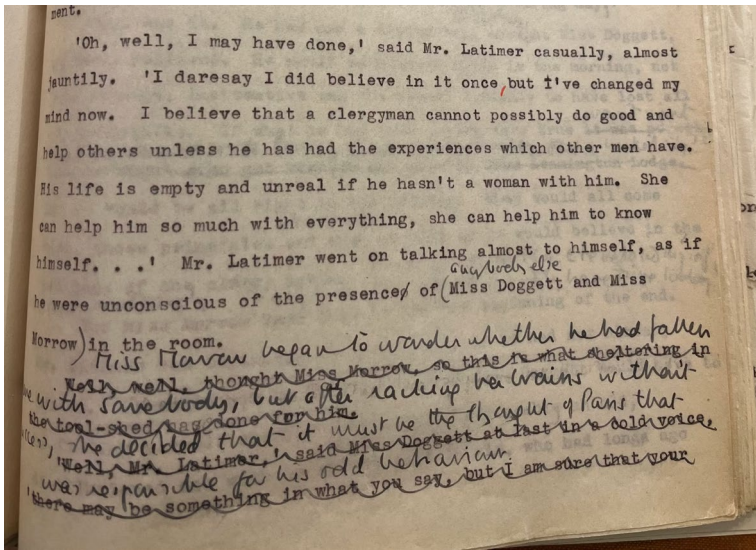 ment.
'Oh, well, I may have done,' said Mr. Latimer casually, almost
jauntily. 'I daresay I did believe in it once, but I've changed my
mind now. I believe that a clergyman cannot possibly do good and
help others unless he has had the experiences which other men have.
His life is empty and unreal if he hasn't a woman with him. She
can help him so much with everything, she can help him to know
himself. . . .' Mr. Latimer went on talking almost to himself, as if
anybody else
he were unconscious of the presence of (Miss Doggett and Miss
Morrow) in the room.
Miss Morrow began to wonder whether he had fallen
Well, well, thought Miss Morrow, so this is what sheltering in
with somebody, but after racking her brains without
the tool-shed has done for him.
she decided that it must be the thought of Paris that
'Well, Mr. Latimer,' said Miss Doggett at last in a cold voice,
was responsible for his odd behaviour.
'there may be something in what you say, but I am sure that your